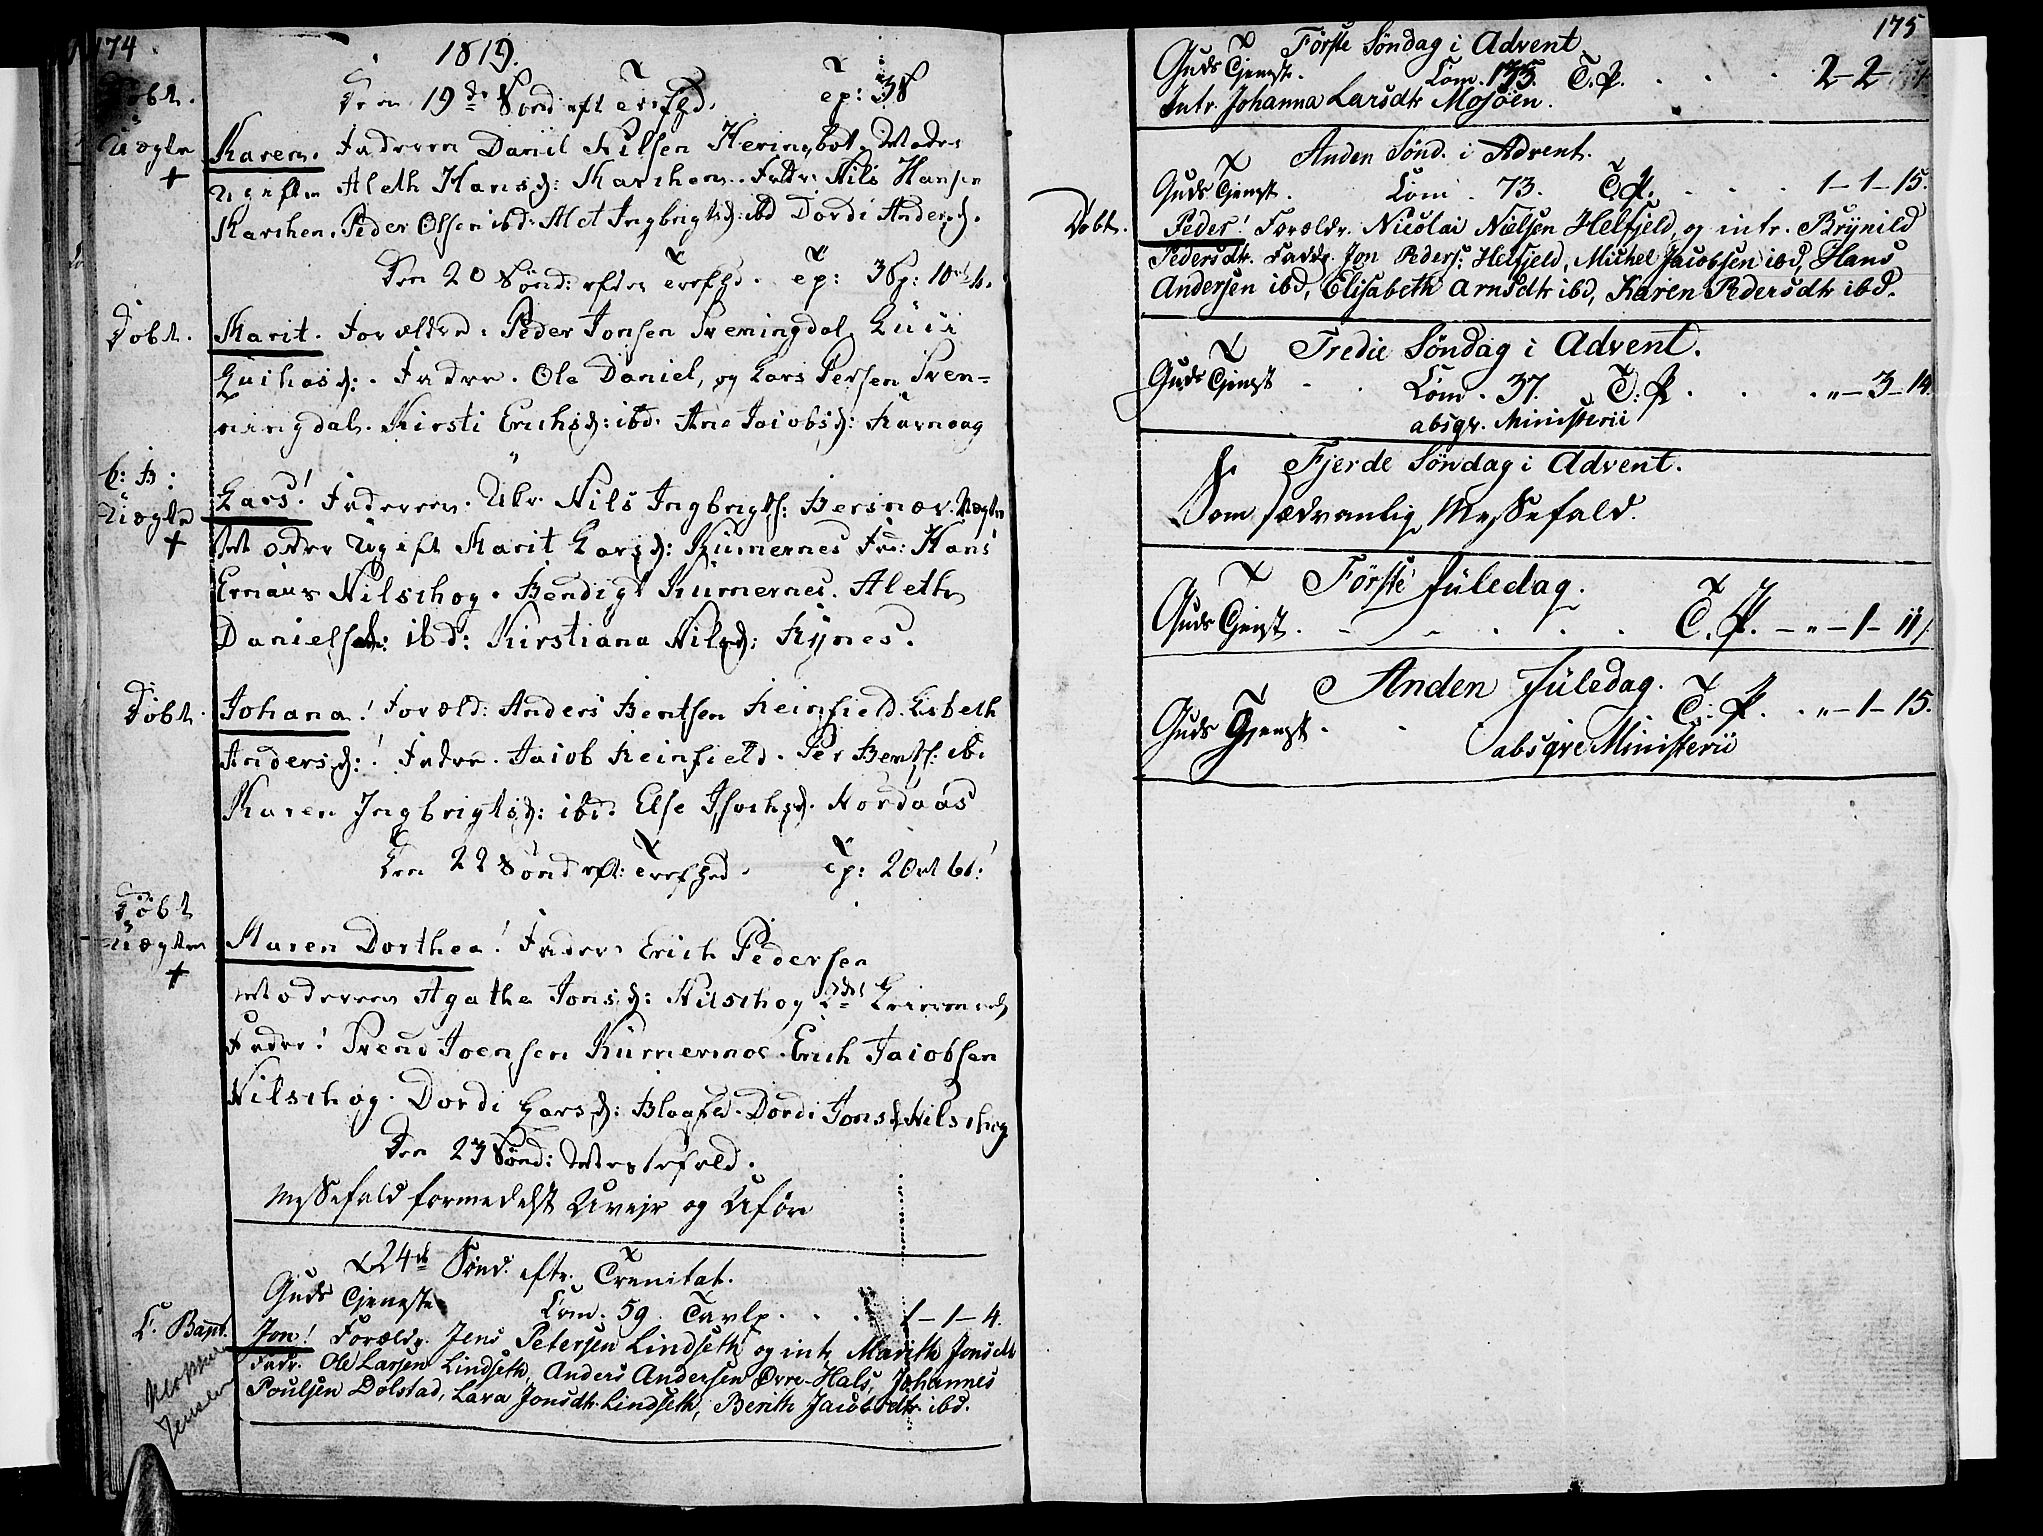 174
1819.
Døbt.
Den 19de Sønd: eft Trefhed. Tp: 38
Uægte
Karen. Faderen Daniil Nilsen Heringbot, Moder
ugifte Aleth Hansd: Marchen. Fadr: Nils Hansen
Marchen. Peder Olsen ibd: Alet Ingbrigtsd: ibd Dordi Andersd.
Den 20 Sønd: efter Trefhd. Tp:
Døbt.
Marit. Forældre. Peder Jonsen Svenningdal, Luci
Fadre. Ole Daniel, og Lars Persen Sven-
ningdal. Kirsti Erichsd: ibd: Ane Jacobsd:
C: B:
Uægte
Lars! Faderen. Nils Ingbrigts: Uægte
Moder ugift Marit Larsd: Kumernes Fad: Hans
Nilschog. Bendigt Kumernes. Aleth
Danielsd: ibd: Kirstiana Nilsd: Rynes.
Døbt.
Johana! Foræld: Anders Bentsen Reinfield. Lisbeth
Andersd:! Fadre. Jacob Reinfield. Per Bents: ib.
Karen Ingbrigtsd: ibd: Else Isachsd. Nordaas
Den 22 Sønd eft: Trefhed. Tp: 2 Ort 6s!
Døbt
Uægte
Maren Dorthea! Fader Erich Pedersen
Moderen Agathe Jonsd: Nilschog
Fadre! Svend Joensen Kumermoe. Erich Jacobsen
Nilschog. Dordi Larsd: Blaafld. Dordi Jonsd Nilschog
Den 23 Sønd: Messefald.
Messefald formedelst Uvejr og Uføre
24de Sønd. eftr. Trenitat.
Guds Tjeneste Com. 59. Tavlp. . . 1-1-4.
C. Bapt.
Jon! Forældr. Jens Petersen Lindseth og intr. Marith Jonsdtr
Fadr. Ole Larsen Lindseth, Anders Andersen Øvre-Hals, Johannes
Poulsen Dolstad, Lava Jonsdtr. Lindseth, Berith Jacobsdtr. ibd.
Klokker
Jensen
175
Første Søndag i Advent
Guds Tjenest. Com. 135. T. P. . . . 2-2-
Intr. Johanna Larsdtr Mosøen.
Anden Sønd. i Advent.
Guds Tjenest. Com. 73. T. P. . . . 1-1-15.
Døbt.
Peder! Forældr. Nicolai Nielsen Helfjeld, og intr. Brynild
Pedersdtr. Faddr. Jon Peders: Helfjeld, Michel Jacobsen ibd, Hans
Andersen ibd, Elisabeth Arnsdtr ibd, Karen Pedersdtr ibd.
Tredie Søndag i Advent.
Guds Tjenest . . Com. 37. T: P. . . . „-3-14.
absqv. Ministerii
Fjerde Søndag i Advent.
Som sædvanlig Messefald.
Første Juledag.
Guds Tjenst. T. P. - „-1-11.
Anden Juledag.
Guds Tjenest. . T. P. . „-1-15.
absqve Ministerii